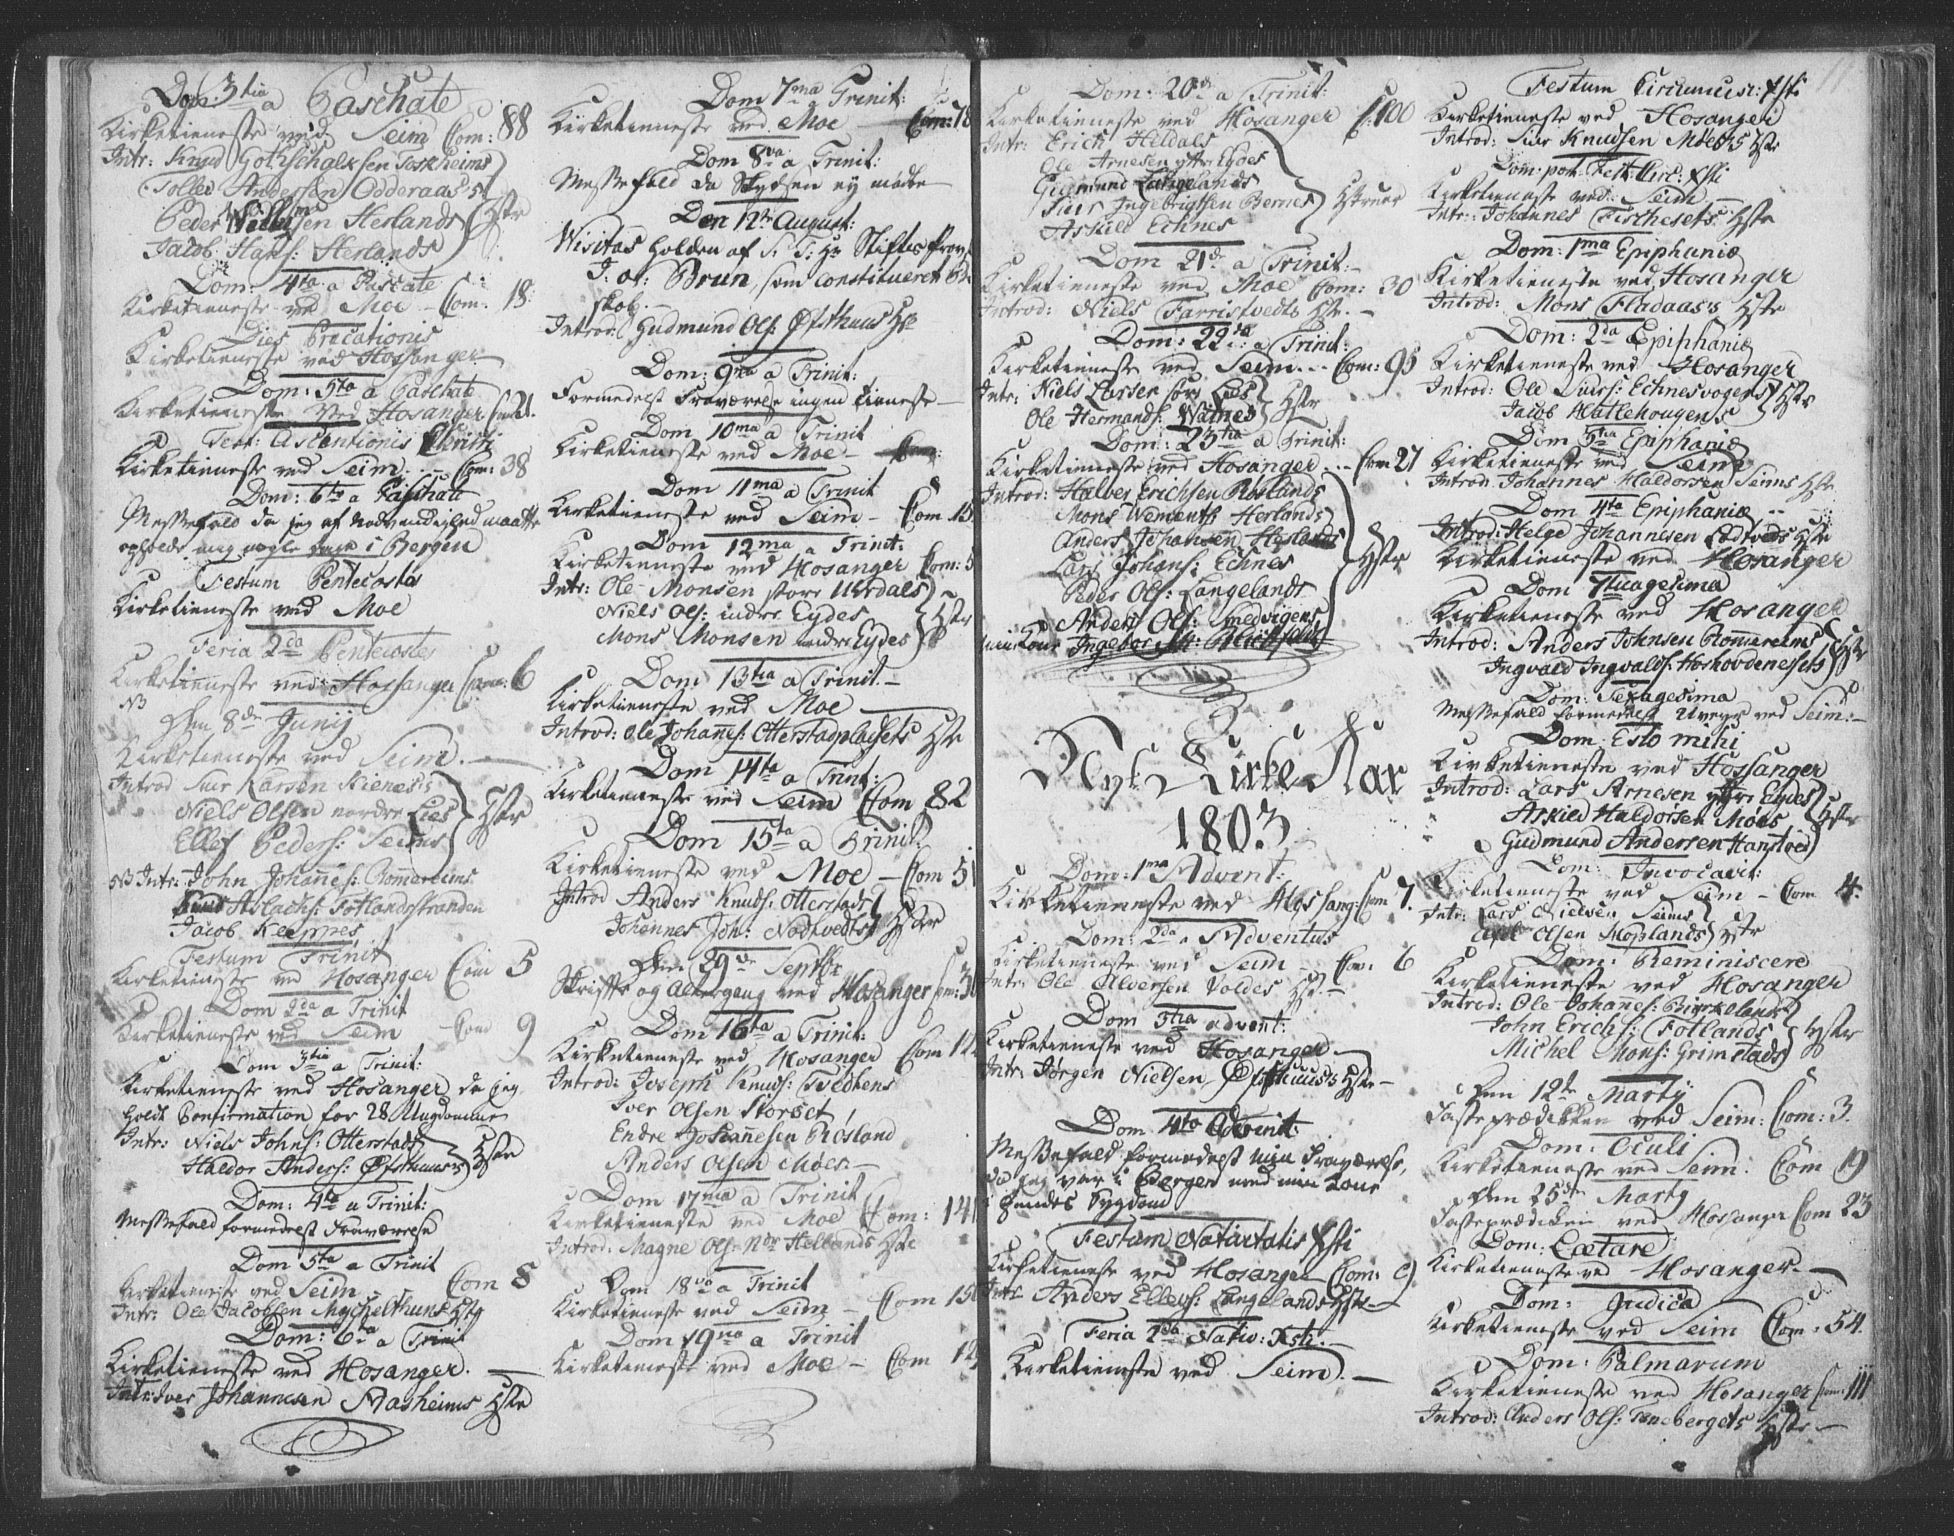 Dom: 3tia a Paschate
Kirketieneste ved Seim Com: 88
Intr: Knud Gotschalksen Toskheims
Tolled Andersen Odderaas's
Peder Hstr
Herlands
Jacob Hans: Herlands
Dom: 4ta a Pascate
Kirketieneste ved Moe - Com: 18
Dies Precationis
Kirketieneste ved Hossanger
Dom: 5ta a Paschate
Kirketieneste ved Hosanger Com 21.
Fest: Ascentionis Christi
Kirketieneste ved Seim - Com: 38
Dom: 6ta a Paschate
Messefald da jeg af Nødvendighed maatte
opholde mig nogle dage i Bergen
Festum Pentecostes
Kirketieneste ved Moe
Feria 2da Pentecostes
Kirketieneste ved Hossanger Com: 6
NB
Den 8de Junij
Kirketieneste ved Seim.
Introd Siur Larsen Kienes's
Niels Olsen nordre Lies Hstr
Ellef Peders: Seims
NB Intr: John Johannes: Romereims
Knud Aslachs: Fotlandsstranden
Jacob
Festum Trinit
Kirketieneste ved Hosanger Com 5
Dom 2da a Trinit
Kirketieneste ved Seim Com 9
Dom 3tia a Trinit:
Kirketieneste ved Hosanger da jeg
holdt Confirmation for 28 Ungdomme
Intr: Niels Johns: Otterstads Hstr
Haldor Anders: Øfsthuus's
Dom: 4ta a Trinit:
Messefald formedelst Fraværelse
Dom 5ta a Trinit
Kirketieneste ved Seim - Com 8
Intr: Ole Jacobsen Mychelthuns Hst
Dom: 6ta a Trinit
Kirketieneste ved Hosanger.
Intr: Iver Johannesen Aasheims Hstr
Dom 7ma a Trinit:
Kirketieneste ved Moe Com: 78
Dom 8va a Trinit:
Messefald da Skydsen ej mødte
Den 12te August:
Visitas holden af S. T: Hr Stifts Prov:
J. N: Brun, som constitueret Bi-
skob.
Introd: Gudmund Ols: Øfsthuus Hst
Dom: 9na a Trinit:
Formedelst Fraværelse ingen tieneste
Dom 10ma a Trinit
Kirketieneste ved Moe -
Dom 11ma a Trinit
Kirketieneste ved Seim - Com 15
Dom 12ma a Trinit:
Kirketieneste ved Hosanger Com: 5
Intr: Ole Monsen store Urdals
Niels Ols: indre Eydes Hstr
Mons Monsen indre Eydes
Dom: 13tia a Trinit.
Kirketieneste ved Moe
Introd: Ole Johannes: Otterstadplasets Hstr
Dom 14ta a Trinit:
Kirketieneste ved Seim Com 82
Dom 15ta a Trinit:
Kirketieneste ved Moe - Com 51
Introd Anders Knuds: Otterstads Hstr
Johannes Joh: Nødtvedts
Den 29de Septbr
Skrifte og Altergang ved Hosanger Com: 3
Dom 16ta a Trinit:
Kirketieneste ved Hosanger Com 12
Introd: Joseph Knuds: Tvedtens
Iver Olsen Storset
Endre Johannesen Røsland
Anders Olsen Moes
Dom 17ma a Trinit
Kirketieneste ved Moe Com: 141
Introd: Magne Ols: Ndr Hellands Hstr
Dom 18va a Trinit
Kirketieneste ved Seim - Com 15
Dom 19na a Trinit
Kirketieneste ved Moe - Com 12
Dom: 20de a Trinit:
Kirketieneste ved Hosanger C: 100
Intr: Erich Heldals
Ole Arnesen yttre Eydes
Gudmund Langelands Hstruer
Siurs Ingebrigtsen Bernes
Askild Echnes
Dom 21de a Trinit:
Kirketieneste ved Moe Com: 30
Introd: Niels Farristvedts Hstr.
Dom: 22da a Trinit:
Kirketieneste ved Seim Com: 95
Intr: Niels Larsen søre Lies Hstr
Ole Hermands: Watnes
Dom: 23tia a Trinit:
Kirketieneste ved Hosanger Com 27
Introd: Halver Erichsen Røslands
Mons Wements Herlands
Anders Johansen Herlands
Lars Johans: Echnes Hstr
Peder Ols: Langelands
Anders Ols:
min Kone Ingebor
Nyt Kirke Aar
1803
Dom: 1ma Advent:
Kirketieneste ved Hossang: Com 7.
Dom: 2da Adventus
Kirketieneste ved Seim - Com: 6
Intr: Ole Alversen Voldes Hst
Dom 3tia advent:
Kirketieneste ved Hosanger
Intr: Jørgen Nielsen Øfsthuus's Hstr
Dom 4ta Advent:
Messefald formedelst min Fraværelse,
da jeg var i Bergen med min Kone
i hendes Sygdom
Festum Nativitatis Xsti
Kirketieneste ved Hosanger Com: 9
Intr Anders Ellevs: Langelands Hstr
Feria 2da Nativ: Xsti:
Kirketieneste ved Seim.
Festum Circumcis: Xsti
Kirketieneste ved Hosanger
Introd: Siur Knudsen Moes's Hstr
Dom: post Fest: Circ: Xsti
Kirketieneste ved Seim
Intr: Johannes Fischesets Hstr
Dom: 1ma Epiphaniæ
Kirketieneste ved Hosanger
Introd: Mons Fladaas's Hstr
Dom: 2da Epiphaniæ
Kirketieneste ved Hosanger
Introd: Ole Siurs: Echnesvogens Hstr
Jacob Hatlehougens
Dom 3tia Epiphaniæ
Kirketieneste ved Seim
Introd: Johannes Haldorsen Seims Hstr
Dom 4ta Epiphaniæ
Introd: Helge Johannesen Lødtveds Hstr
Kirketieneste ved Hosanger
Dom 7tuagesima
Kirketieneste ved Hosanger
Introd: Anders Johnsen Romereims Hstr
Ingvald Ingvalds: Horhovdenesets
Dom: Sexagesima
Messefald formedelst Uveyr ved Seim:
Dom: Esto mihi
Kirketieneste ved Hossanger
Introd: Lars Arnesen yttre Eydes
Askild Haldorsen Moes Hstr
Gudmund Andersen Hanstved
Dom: Invocavit:
Kirketieneste ved Seim - Com 4.
Intr: Lars Nielsen Seims
Olsen Hoplands Hstr
Dom: Reminiscere
Kirketieneste ved Hosanger
Introd: Ole Johanes: Birkelands
John Erichs: Fotlands Hstr
Michel Mons: Grimstads
Den 12te Martij
Fasteprædikken ved Seim: Com: 3.
Dom: Oculi
Kirketieneste ved Seim. Com 19
Den 25de Martij
Fasteprædiken ved Hossanger Com 23
Dom: Lætare
Kirketieneste ved Hosanger.
Dom: Judica
Kirketieneste ved Seim Com: 54.
Dom: Palmarum
Kirketieneste ved Hosanger Com: 111
Introd: Anders Ols: Tenebergets Hstr